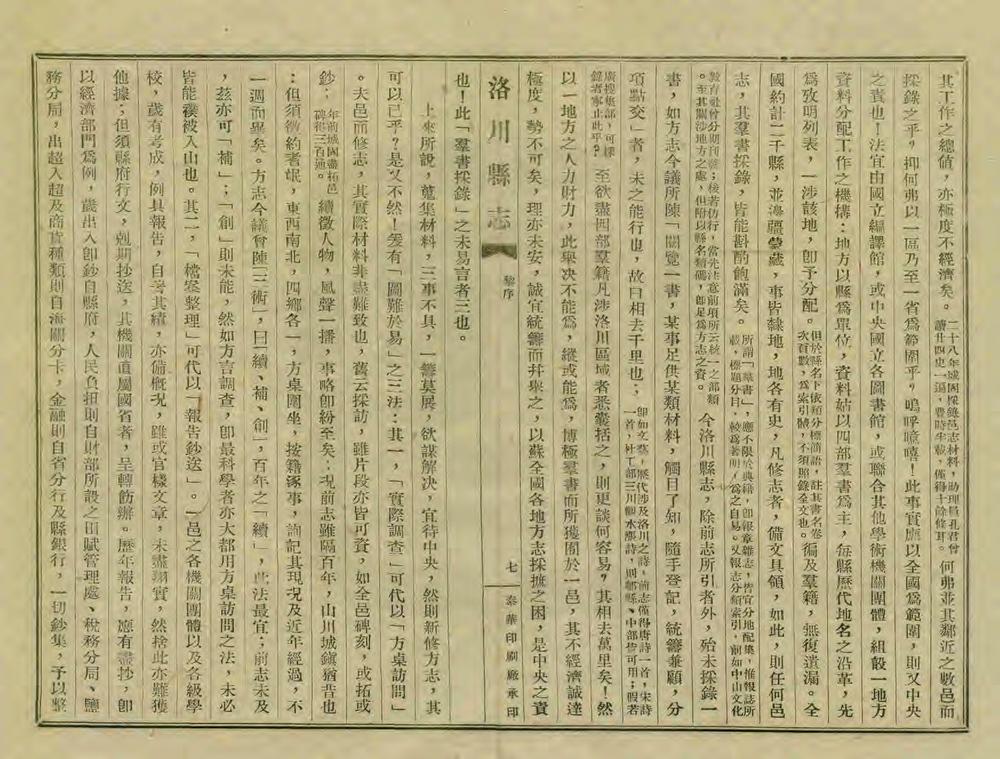 其工作之總值，亦極度不經濟矣。二十八年城固採錄邑志材料，助理員孔君曾
讀廿四史一遍，費時半載，僅得十餘條耳。何弗並其鄰近之數邑而
採錄之乎？抑何弗以一區乃至一省為範圍乎？嗚呼噫嘻！此事實應以全國為範圍，則又中央
之責也！法宜由國立編譯館，或中央國立各圖書館，或聯合其他學術機關團體，組設一地方
資料分配工作之機構：地方以縣為單位，資料姑以四部羣書為主，每縣歷代地名之沿革，先
為攷明列表，一涉該地，卽予分配。但於縣名下依類分標簡語，註其書名卷
次頁數，為索引體，不須照錄全文也。徧及羣籍，無復遺漏。全
國約計二千縣，並海疆蒙藏，事皆隸地，地各有史，凡修志者，備文具領，如此，則任何邑
志，其羣書採錄，皆能斟酌飽滿矣。所謂「羣書」，應不限於典籍，卽報章雜志，皆宜分地配集，惟報誌所
載，標題分目，較為著明，為之自易。又報志分類索引，前如中山文化
教育社會分期刊發；後若仿行，當先注意前項所云統一之部類
。至其關涉地方之處，但附以縣名類碼，卽足為方志之資。今洛川縣志，除前志所引者外，殆未採錄一
書，如方志今議所陳「關覽一書，某事足供某類材料，觸目了知，隨手登記，統籌兼顧，分
項點交」者，未之能行也，故曰相去千里也；卽如文藝，歷代涉及洛川之詩，前志僅得唐詩一首，宋詩
一首，杜工部三川觀水漲詩，則鄜縣、中部皆可用；假若
廣搜集部，可採
錄者寧止此乎？至欲盡四部羣籍凡涉洛川區域者悉囊括之，則更談何容易？其相去萬里矣！然
以一地方之人力財力，此舉決不能為，縱或能為，博極羣書而所獲囿於一邑，其不經濟誠達
極度，勢不可矣，理亦未安，誠宜統籌而幷舉之，以蘇全國各地方志採摭之困，是中央之責
洛川縣志
黎序
七
泰華印刷廠承印
也！此「羣書採錄」之未易言者三也。
上來所說，蒐集材料，三事不具，一籌莫展，欲謀解決，宜待中央，然則新修方志，其
可以已乎？是又不然！爰有「圖難於易」之三法：其一，「實際調查」可代以「方桌訪問」
。夫邑而修志，其實際材料非盡難致也，舊云採訪，雖片段亦皆可資，如全邑碑刻，或拓或
鈔；年前城固盡拓邑
碑得三百通。續徵人物，風聲一播，事略卽紛至矣；況前志雖隔百年，山川城鎮猶昔也
：但須徵約耆氓，東西南北，四鄉各一，方桌圍坐，按籍逐事，詢記其現況及近年經過，不
一週而畢矣。方志今議曾陳三術，曰續、補、創，百年之「續」，此法最宜；前志未及
，茲亦可「補」；「創」則未能，然如方言調查，卽最科學者亦大都用方桌訪問之法，未必
皆能襆被入山也。其二，「檔案整理」可代以「報告鈔送」。一邑之各機關團體以及各級學
校，歲有考成，例具報告，自考其績，亦備概況，雖或官樣文章，未盡翔實，然捨此亦難獲
他據；但須縣府行文，尅期抄送，其機關直屬國省者，呈轉飭辦。歷年報告，應有盡抄，卽
以經濟部門為例，歲出入卽鈔自縣府，人民負担則自財部所設之田賦管理處、稅務分局、鹽
務分局，出超入超及商貨種類則自海關分卡，金融則自省分行及縣銀行，一切鈔集，予以整